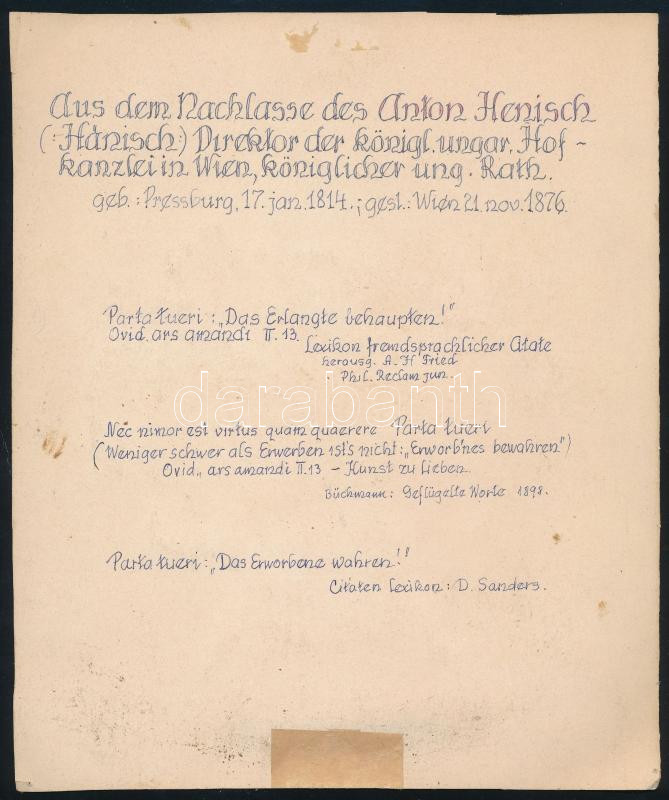 Aus dem Nachlasse des Anton Henisch
(:Hänisch:) Direktor der königl. ungar. Hof-
kanzlei in Wien, königlicher ung. Rath.
geb.: Pressburg, 17. jan. 1814.; gest.: Wien 21. nov. 1876.
Parta tueri: „Das Erlangte behaupten!"
Ovid. ars amandi II. 13.
Lexikon fremdsprachlicher Citate
herausg. A. H Fried
Phil. Reclam jun.
darabanth
Nec nimor est virtus quam quaerere Parta tueri
(Weniger schwer als Erwerben ist's nicht: „Erworb'nes bewahren")
Ovid., ars amandi II. 13 - Kunst zu lieben.
Büchmann: Geflügelte Worte 1898.
Parta tueri: „Das Erworbene wahren!"
Citaten Lexikon: D. Sanders.